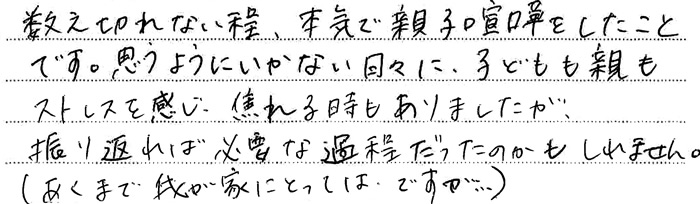 数え切れない程、本気で親子喧嘩をしたこと
です。思うようにいかない日々に、子どもも親も
ストレスを感じ、焦れる時もありましたが、
振り返れば必要な過程だったのかもしれません。
(あくまで我が家にとっては、ですが…)